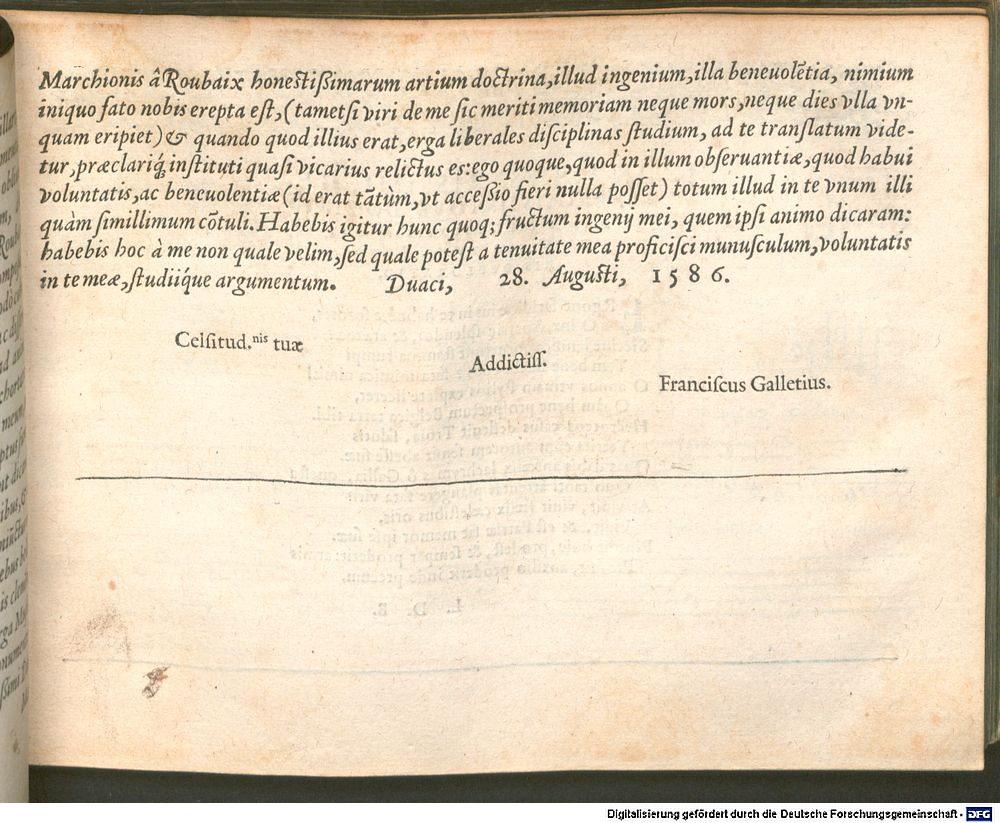 Marchionis â Roubaix honestißimarum artium doctrina, illud ingenium, illa beneuolẽtia, nimium
iniquo fato nobis erepta est, (tametsi viri de me sic meriti memoriam neque mors, neque dies vlla vn-
quam eripiet) & quando quod illius erat, erga liberales disciplinas studium, ad te translatum vide-
tur, præclariq́; instituti quasi vicarius relictus es: ego quoque, quod in illum obseruantiæ, quod habui
voluntatis, ac beneuolentiæ (id erat tãtùm, vt acceßio fieri nulla posset) totum illud in te vnum illi
quàm simillimum cõtuli. Habebis igitur hunc quoq; fructum ingenij mei, quem ipsi animo dicaram:
habebis hoc à me non quale velim, sed quale potest a tenuitate mea proficisci munusculum, voluntatis
in te meæ, studiíque argumentum. Duaci, 28. Augusti, 1586.
Celsitud.nis tuæ
Addictiss.
Franciscus Galletius.
L. D. B.
Digitalisierung gefördert durch die Deutsche Forschungsgemeinschaft - DFG